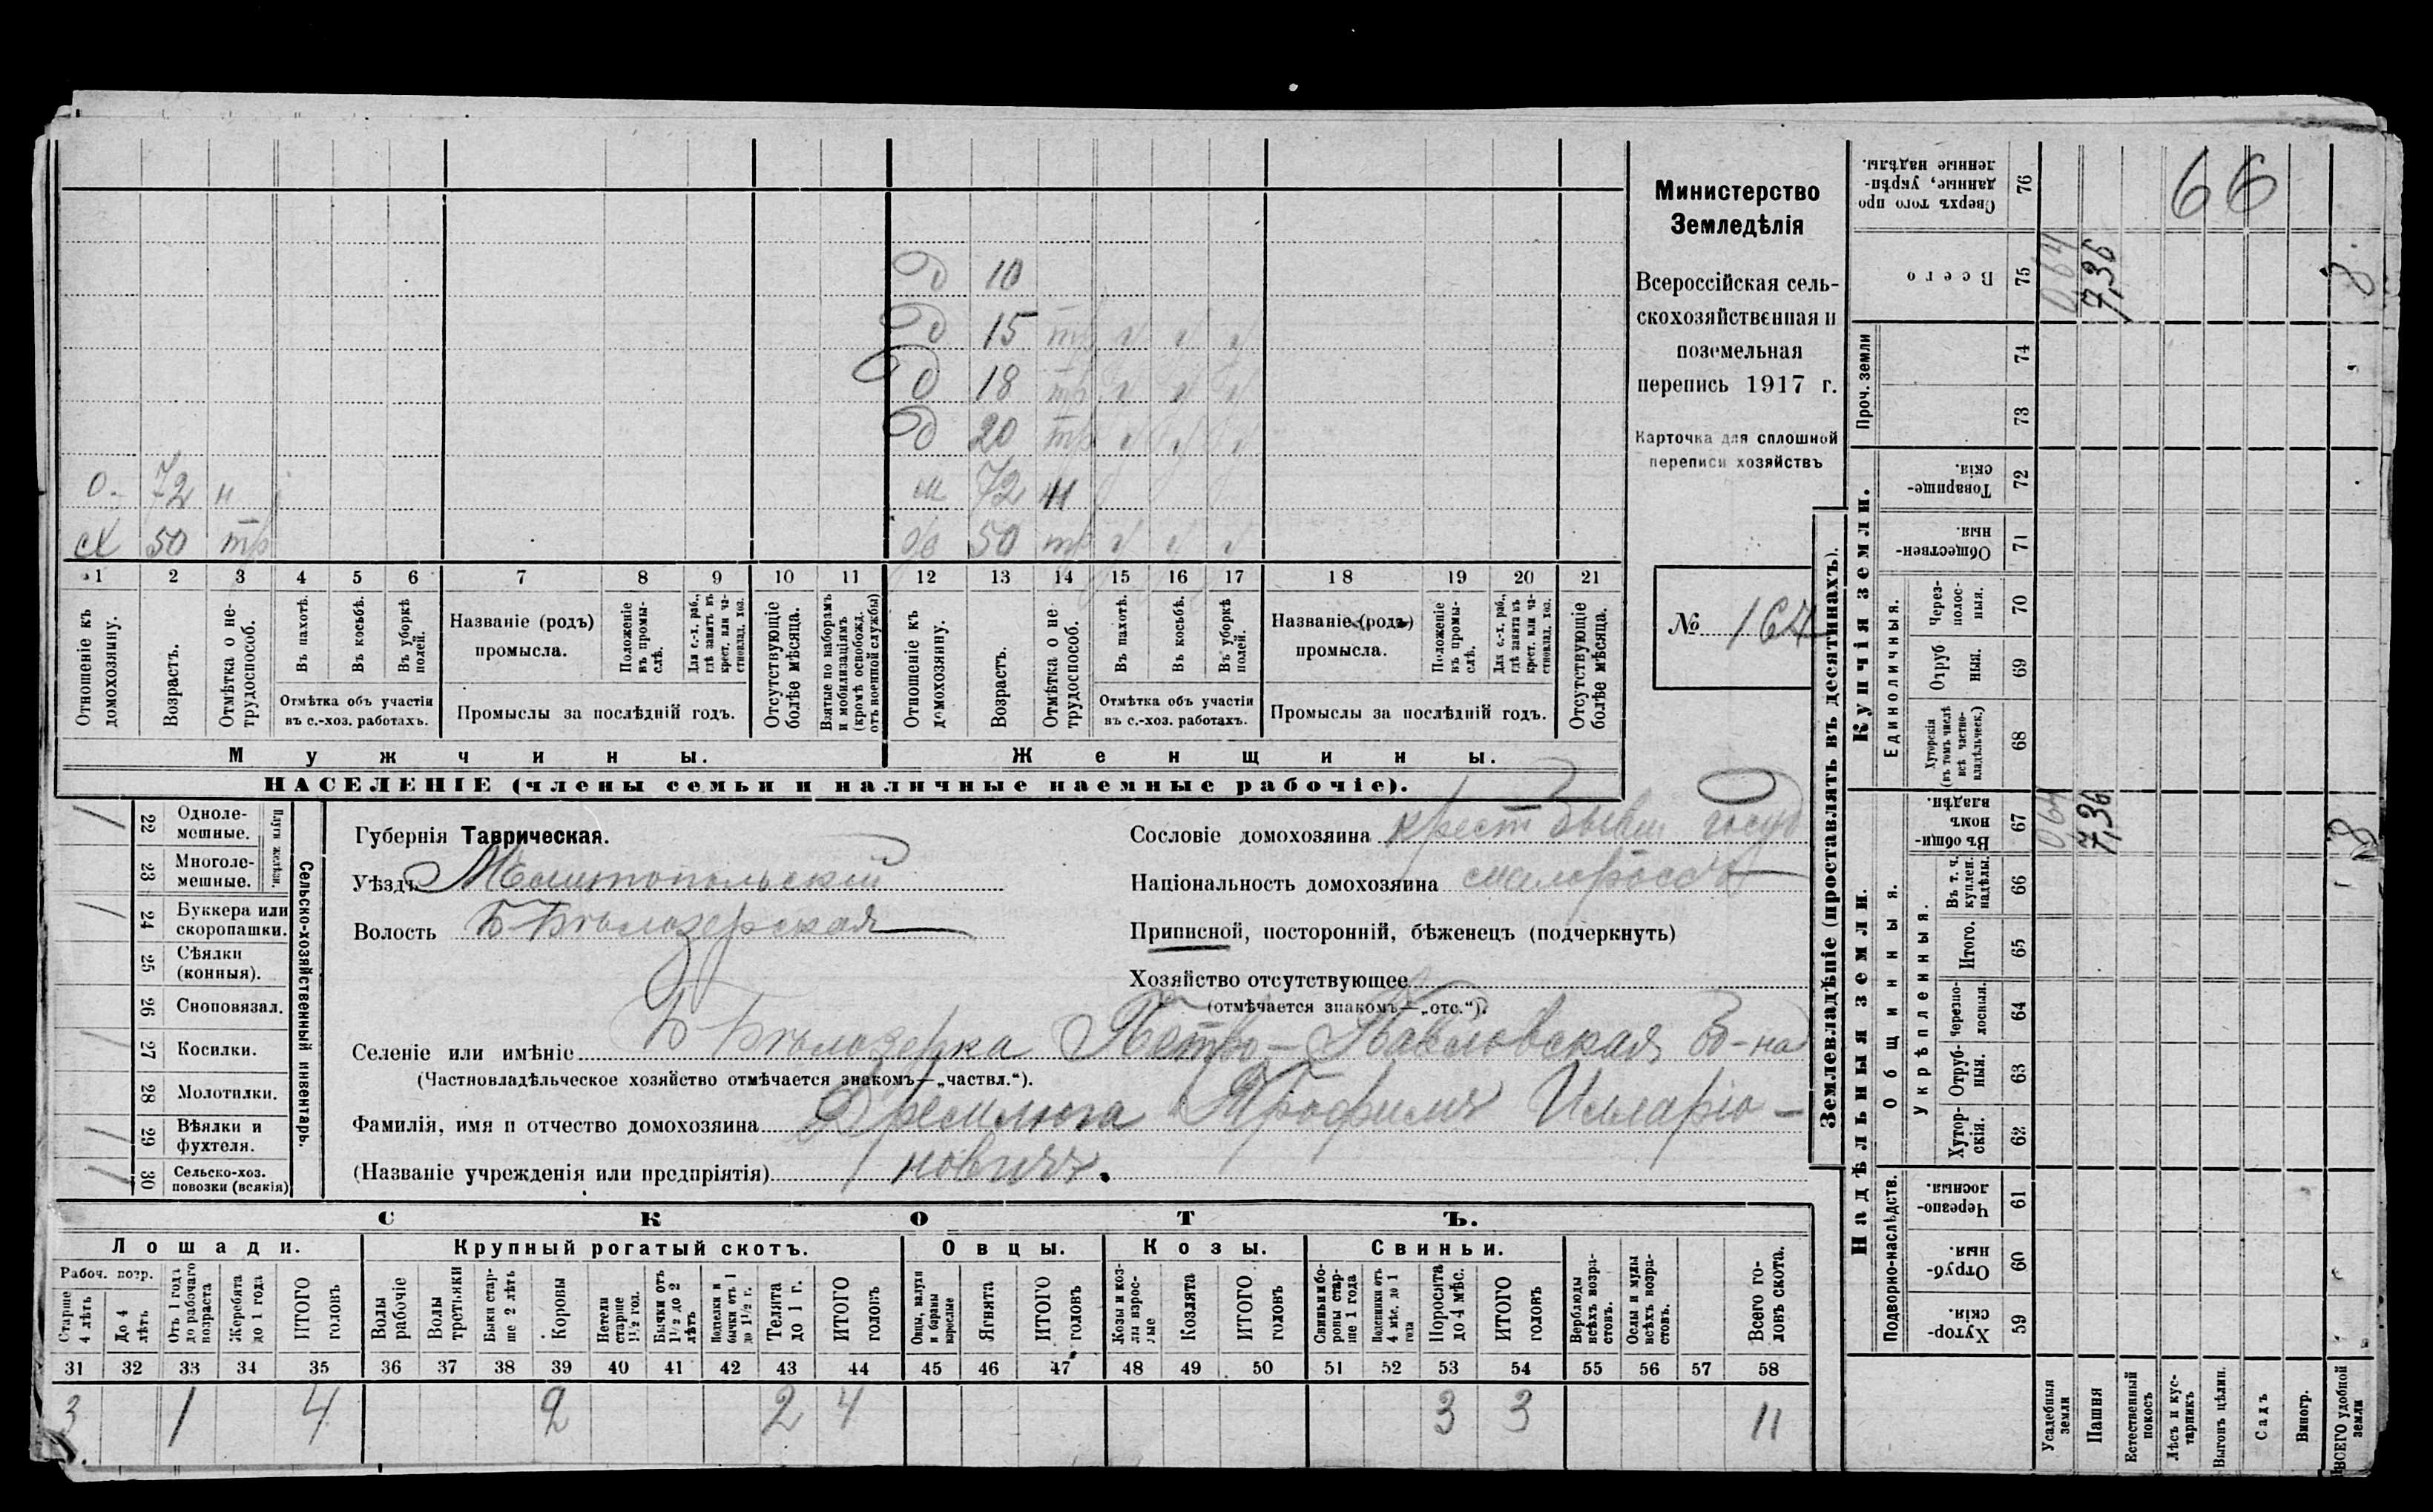 Министерство
Земледѣлія
Всероссійская сель-
скохозяйственная и
поземельная
перепись 1917 г.
Карточка для сплошной
переписи хозяйствъ
№ 164
66
Д 10
Д 15 тр
Д 18 тр
Д 20 тр
О. 72 н м 72 н
сх 50 тр 50 тр
1 2 3 4 5 6 7 8 9 10 11 12 13 14 15 16 17 18 19 20 21
Отношеніе къ домохозяину.
Возрастъ.
Отмѣтка о не-трудоспособ.
Въ пахотѣ.
Въ косьбѣ.
Въ уборкѣ полей.
Отмѣтка объ участіи
въ с.-хоз. работахъ.
Названіе (родъ)
промысла.
Положеніе въ промы-слѣ.
Для с.-х. раб., гдѣ занятъ въ крест. или ча-стновлад. хоз.
Промыслы за послѣдній годъ.
Отсутствующіе болѣе мѣсяца.
Взятые по наборамъ и мобилизаціямъ (кромѣ освобожд. отъ военной службы)
Отношеніе къ домохозяину.
Возрастъ.
Отмѣтка о не-трудоспособ.
Въ пахотѣ.
Въ косьбѣ.
Въ уборкѣ полей.
Отмѣтка объ участіи
въ с.-хоз. работахъ.
Названіе (родъ)
промысла.
Положеніе въ промы-слѣ.
Для с.-х. раб., гдѣ занята въ крест. или ча-стновлад. хоз.
Промыслы за послѣдній годъ.
Отсутствующіе болѣе мѣсяца.
Мужчины. Женщины.
НАСЕЛЕНІЕ (члены семьи и наличные наемные рабочіе).
22 Одноле-мешные.
23 Многоле-мешные.
Плуги желѣзн.
24 Буккера или скоропашки.
25 Сѣялки (конныя).
26 Сноповязал.
27 Косилки.
28 Молотилки.
29 Вѣялки и фухтеля.
30 Сельско-хоз. повозки (всякія)
Сельско-хозяйственный инвентарь.
Губернія Таврическая.
Уѣздъ Мелитопольскій
Волость Б Бѣлозерская
Сословіе домохозяина крест бывш госуд
Національность домохозяина малороссъ
Приписной, посторонній, бѣженецъ (подчеркнуть)
Хозяйство отсутствующее
(отмѣчается знакомъ—„отс.“).
Селеніе или имѣніе Б Бѣлозерка Петро-Павловская
(Частновладѣльческое хозяйство отмѣчается знакомъ—„частвл.“).
Фамилія, имя и отчество домохозяина Дремлюга Трофимъ Илларіо-
(Названіе учрежденія или предпріятія) новичъ.
СКОТЪ.
Лошади. Крупный рогатый скотъ. Овцы. Козы. Свиньи.
Рабоч. возр.
Старше 4 лѣтъ
До 4 лѣтъ
Отъ 1 года до рабочаго возраста
Жеребята до 1 года
ИТОГО головъ
Волы рабочіе
Волы третьяки
Быки стар-ше 2 лѣтъ
Коровы
Нетели старше 1½ год.
Бычки отъ 1½ до 2 лѣтъ
Подтелки и бычки отъ 1 до 1½ г.
Телята до 1 г.
ИТОГО головъ
Овцы, валухи и бараны взрослые
Ягнята
ИТОГО головъ
Козы и коз-лы взрос-лые
Козлята
ИТОГО головъ
Свиньи и бо-ровы стар-ше 1 года
Подсвинки отъ 4 мѣс. до 1 года
Поросята до 4 мѣс.
ИТОГО головъ
Верблюды всѣхъ возра-стовъ.
Ослы и мулы всѣхъ возра-стовъ.
Всего го-ловъ скота.
31 32 33 34 35 36 37 38 39 40 41 42 43 44 45 46 47 48 49 50 51 52 53 54 55 56 57 58
3 1 4 2 2 4 3 3 11
Землевладѣніе (проставлять въ десятинахъ).
Сверхъ того про данные, укрѣп-ленные надѣлы. 76
Всего 75 0,64 7,36 8
Проч. земли 74 73
Купчія земли.
Товарище-скія. 72
Обществен-ныя. 71
Единоличныя.
Через-полос-ныя. 70
Отруб ныя. 69
Хуторскія (въ томъ числѣ всѣ частно-владѣльческ.) 68
Надѣльныя земли.
Общинныя.
Въ общи-номъ владѣн. 67 0,64 7,36 8
Въ т. ч. куплен. надѣлы. 66
Укрѣпленныя.
Итого. 65
Черезпо-лосныя. 64
Отруб-ныя. 63
Хутор-скія. 62
Подворно-наслѣдств.
Черезпо-лосныя. 61
Отруб-ныя. 60
Хутор-скія. 59
Усадебныя земли
Пашня
Естественный покосъ
Лѣсъ и кус-тарникъ
Выгонъ цѣлин.
Садъ
Виногр.
ВСЕГО удобной земли